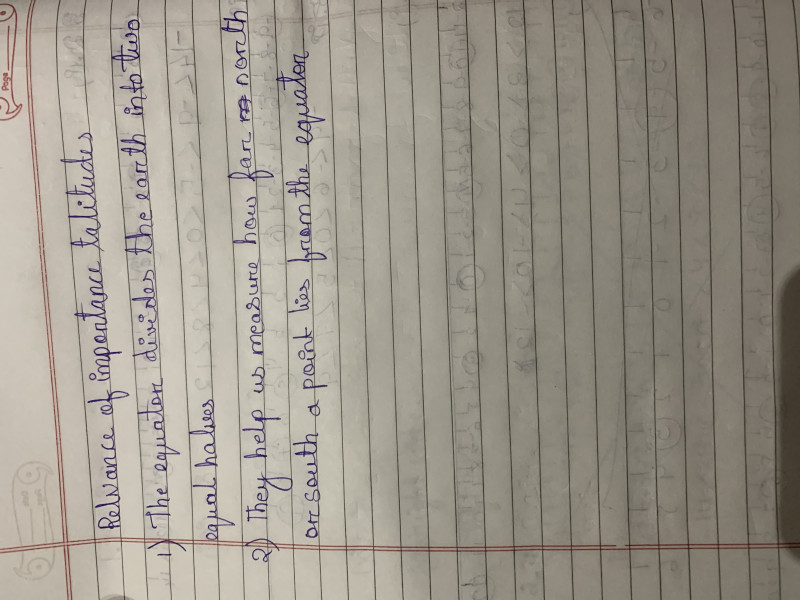 Page
Relvance of importance talitudes
1) The equator divides the earth into two
equal halves
2) They help us measure how far north
or south a point lies from the equator